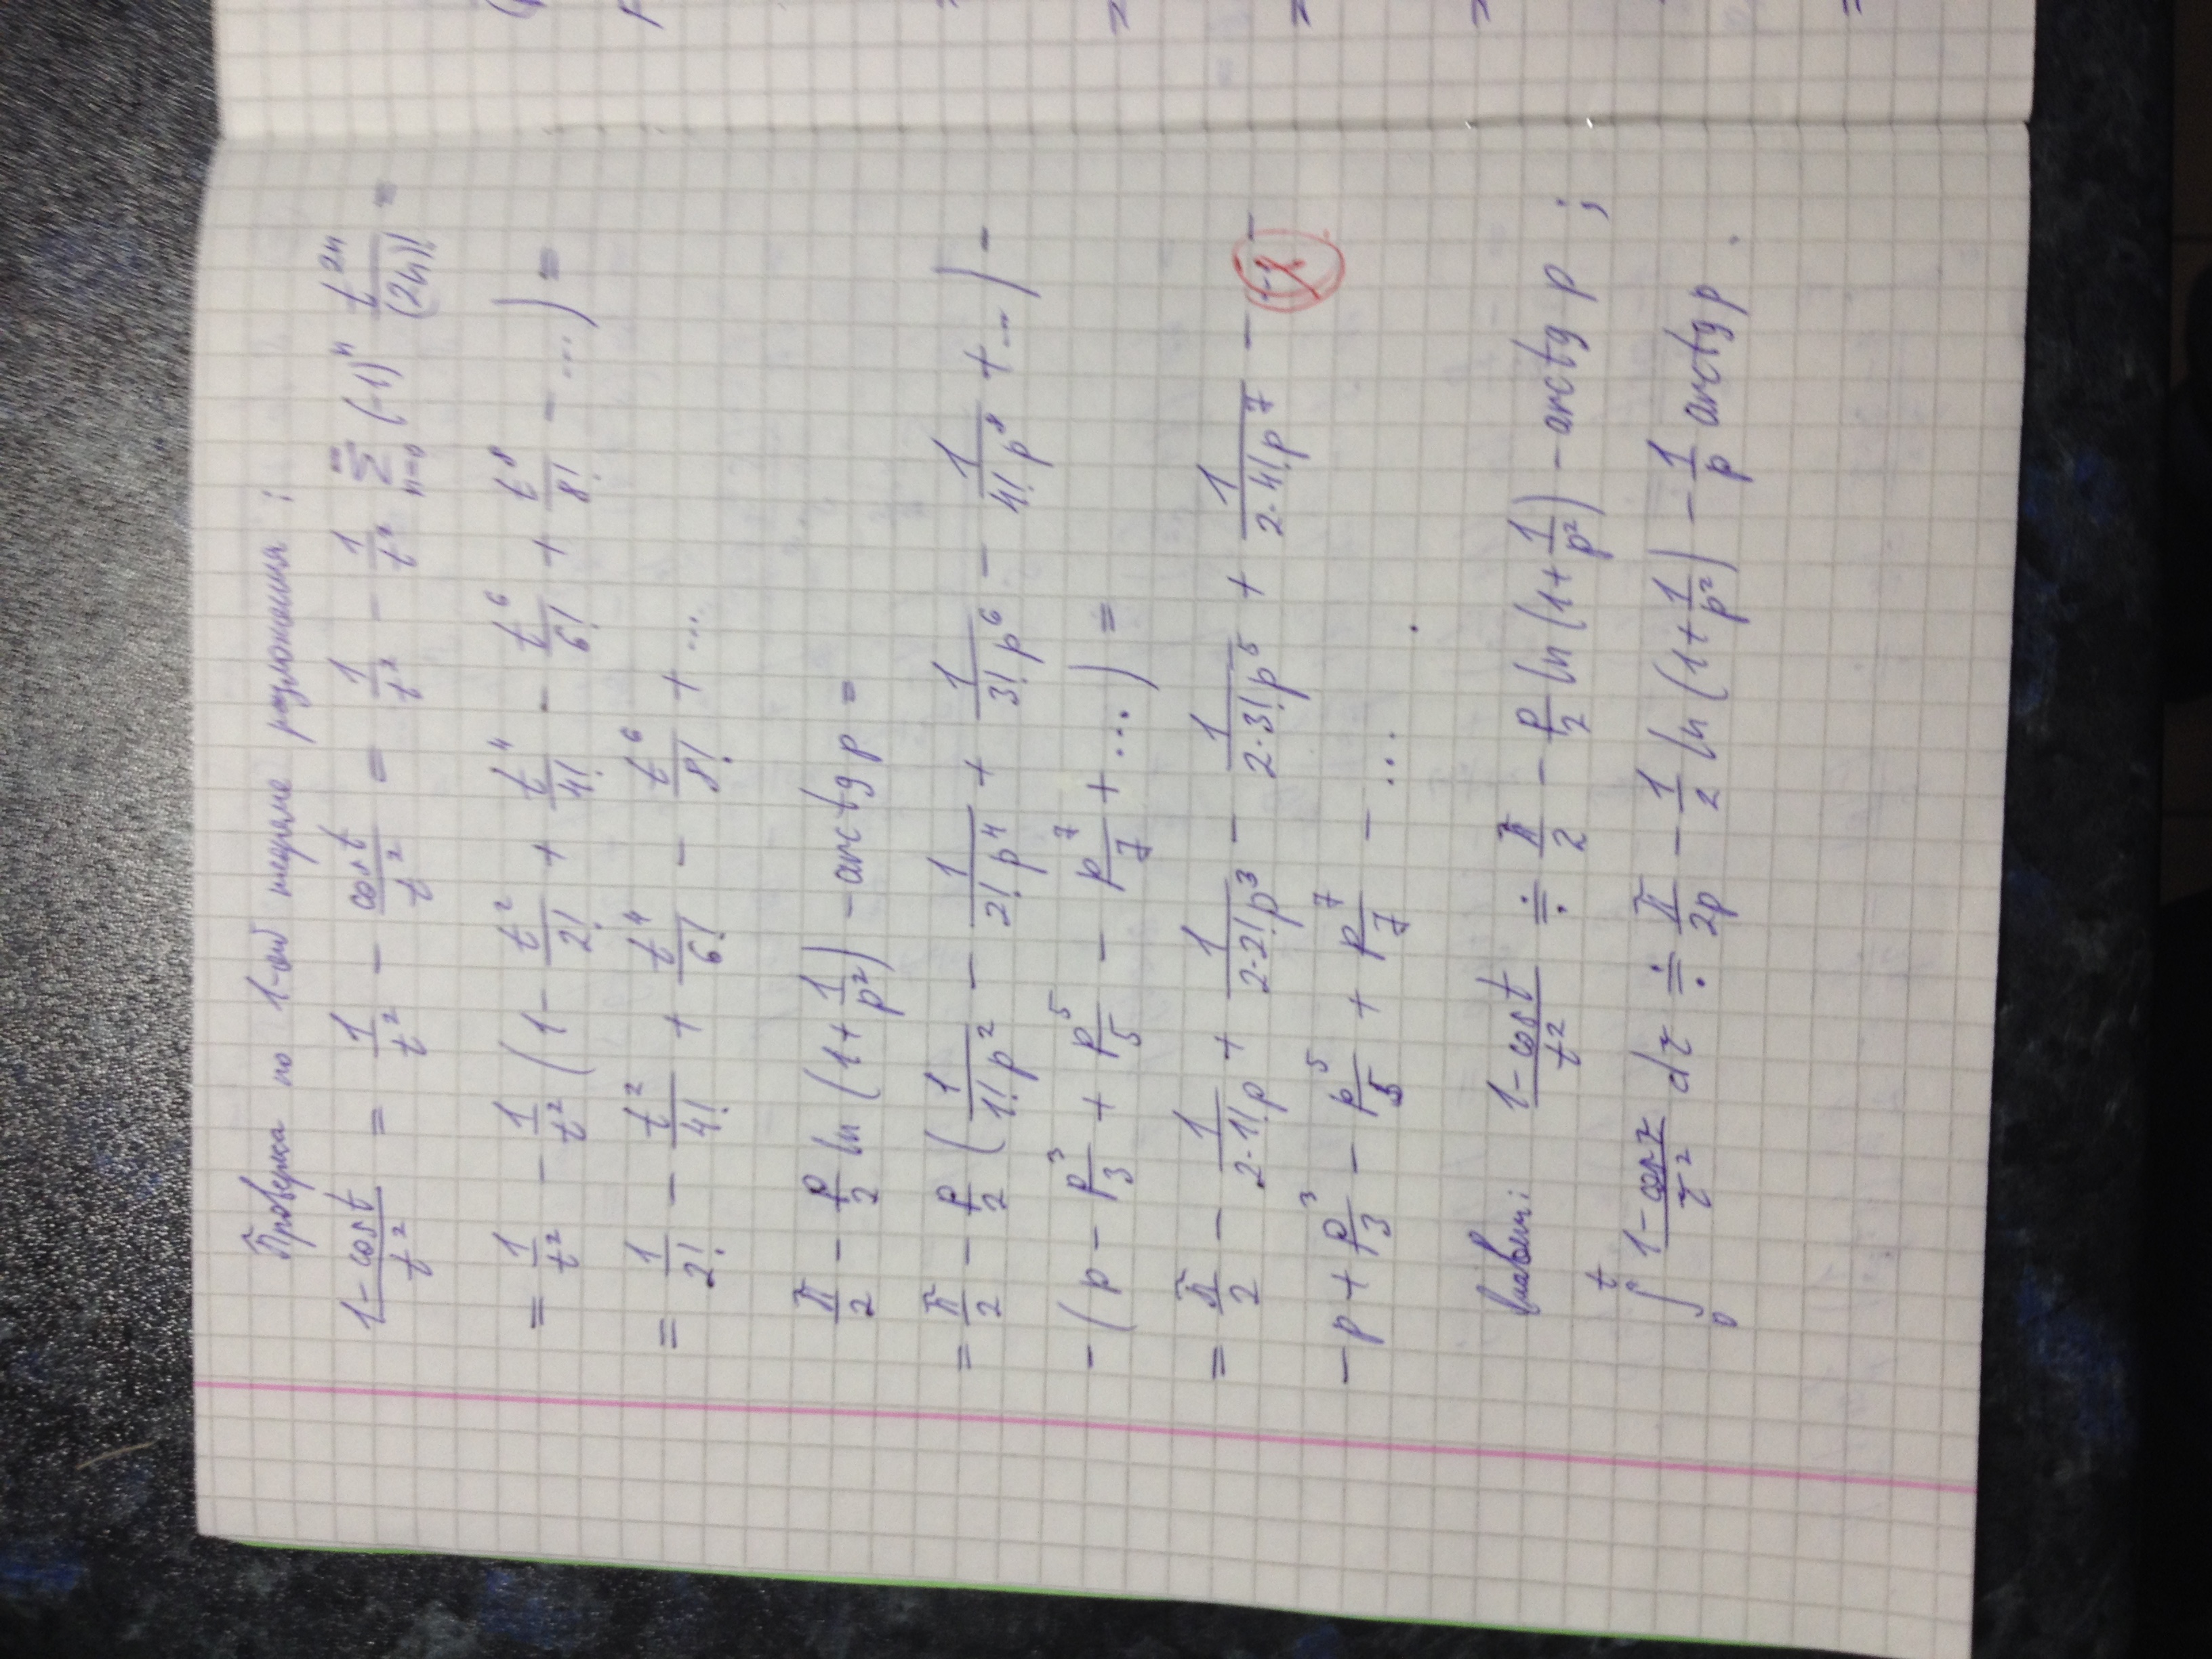 Проверка по 1-ой теореме разложения:
(1 - cos t)/t² = 1/t² - cos t/t² = 1/t² - 1/t² ∑_{n=0}^{∞} (-1)ⁿ t²ⁿ/(2n)! =
= 1/t² - 1/t² (1 - t²/2! + t⁴/4! - t⁶/6! + t⁸/8! - ...) =
= 1/2! - t²/4! + t⁴/6! - t⁶/8! + ...
π/2 - p/2 ln(1 + 1/p²) - arctg p =
= π/2 - p/2 (1/(1! p²) - 1/(2! p⁴) + 1/(3! p⁶) - 1/(4! p⁸) + ...) -
- (p - p³/3 + p⁵/5 - p⁷/7 + ...) =
= π/2 - 1/(2·1! p) + 1/(2·2! p³) - 1/(2·3! p⁵) + 1/(2·4! p⁷) - ... -
- p + p³/3 - p⁵/5 + p⁷/7 - ...
(1 - cos t)/t² ≑ π/2 - p/2 ln(1 + 1/p²) - arctg p ;
∫₀ᵗ (1 - cos τ)/τ² dτ ≑ π/2p - 1/2 ln(1 + 1/p²) - 1/p arctg p .